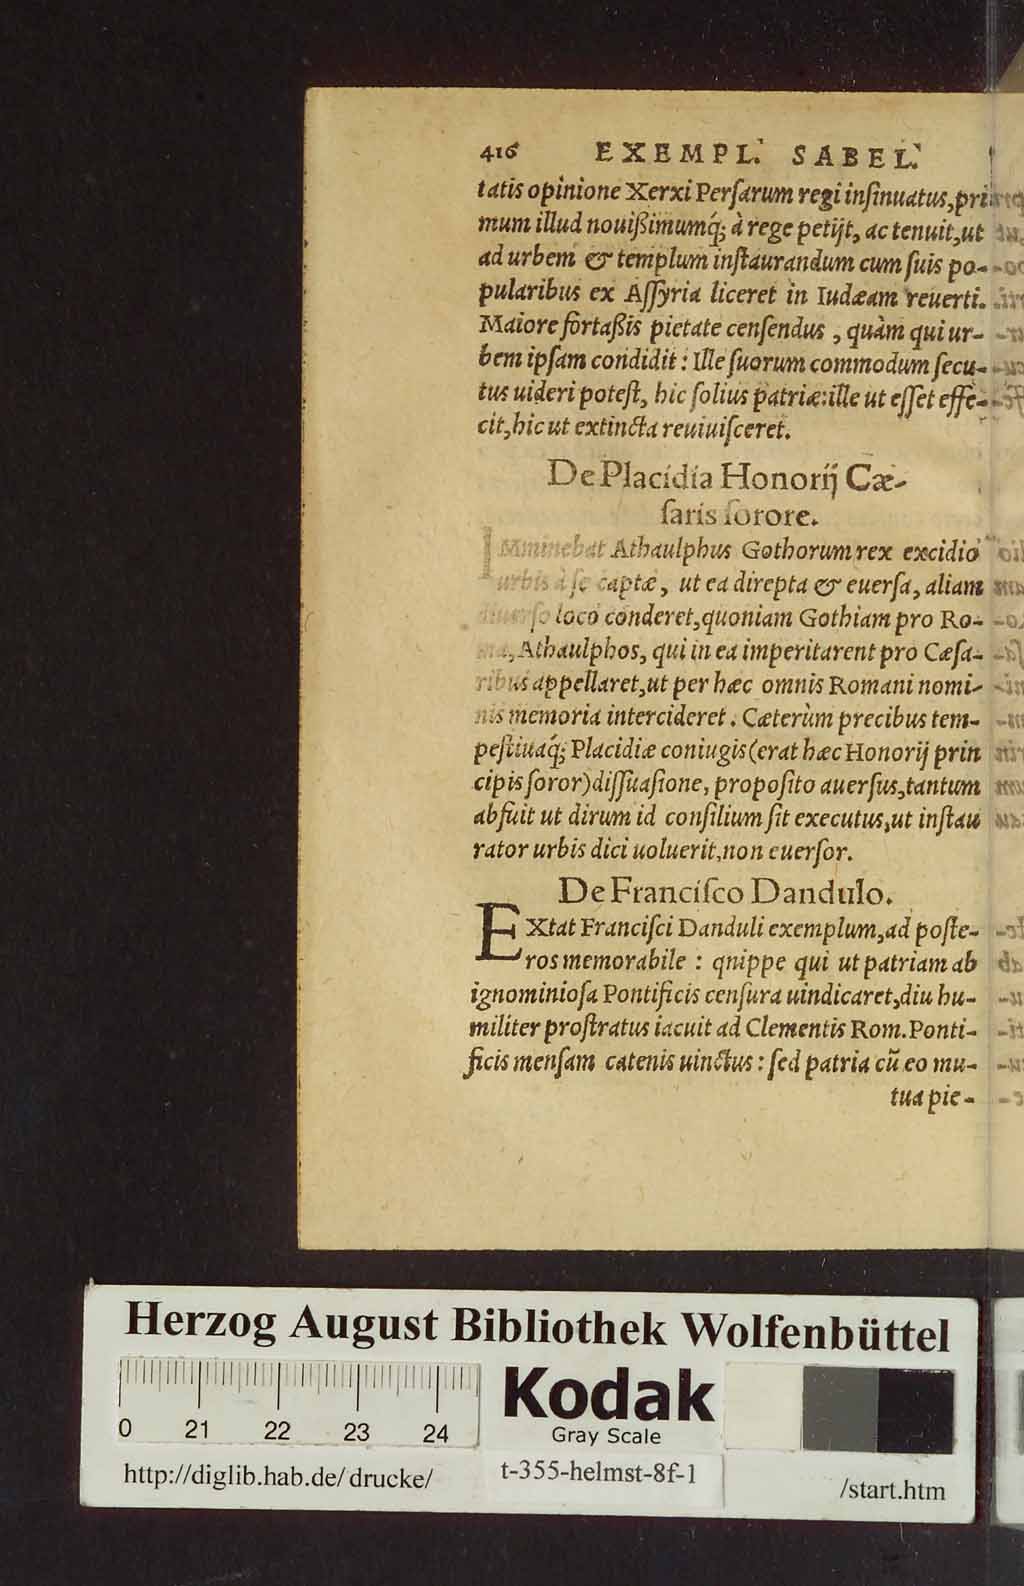 416 EXEMPL. SABEL.
tatis opinione Xerxi Perſarum regi inſinuatus, pri
mum illud nouißimumq́; à rege petijt, ac tenuit, ut
ad urbem & templum inſtaurandum cum ſuis po-
pularibus ex Aſſyria liceret in Iudæam reuerti.
Maiore fortaßis pietate cenſendus, quàm qui ur-
bem ipſam condidit: Ille ſuorum commodum ſecu-
tus uideri poteſt, hic ſolius patriæ: ille ut eſſet effe-
cit, hic ut extincta reuiuiſceret.
De Placidia Honorij Cæ-
ſaris ſorore.
IMminebat Athaulphus Gothorum rex excidio
urbis à ſe captæ, ut ea direpta & euerſa, aliam
diuerſo loco conderet, quoniam Gothiam pro Ro-
ma, Athaulphos, qui in ea imperitarent pro Cæſa-
ribus appellaret, ut per hæc omnis Romani nomi-
nis memoria intercideret. Cæterùm precibus tem-
peſtiuaq́; Placidiæ coniugis (erat hæc Honorij prin
cipis ſoror) diſſuaſione, propoſito auerſus, tantum
abfuit ut dirum id conſilium ſit executus, ut inſtau
rator urbis dici uoluerit, non euerſor.
De Franciſco Dandulo.
EXtat Franciſci Danduli exemplum, ad poſte-
ros memorabile: qnippe qui ut patriam ab
ignominioſa Pontificis cenſura uindicaret, diu hu-
militer proſtratus iacuit ad Clementis Rom. Ponti-
ficis menſam catenis uinctus: ſed patria cũ eo mu-
tua pie-
Herzog August Bibliothek Wolfenbüttel
0 21 22 23 24
Kodak
Gray Scale
http://diglib.hab.de/drucke/ t-355-helmst-8f-1 /start.htm